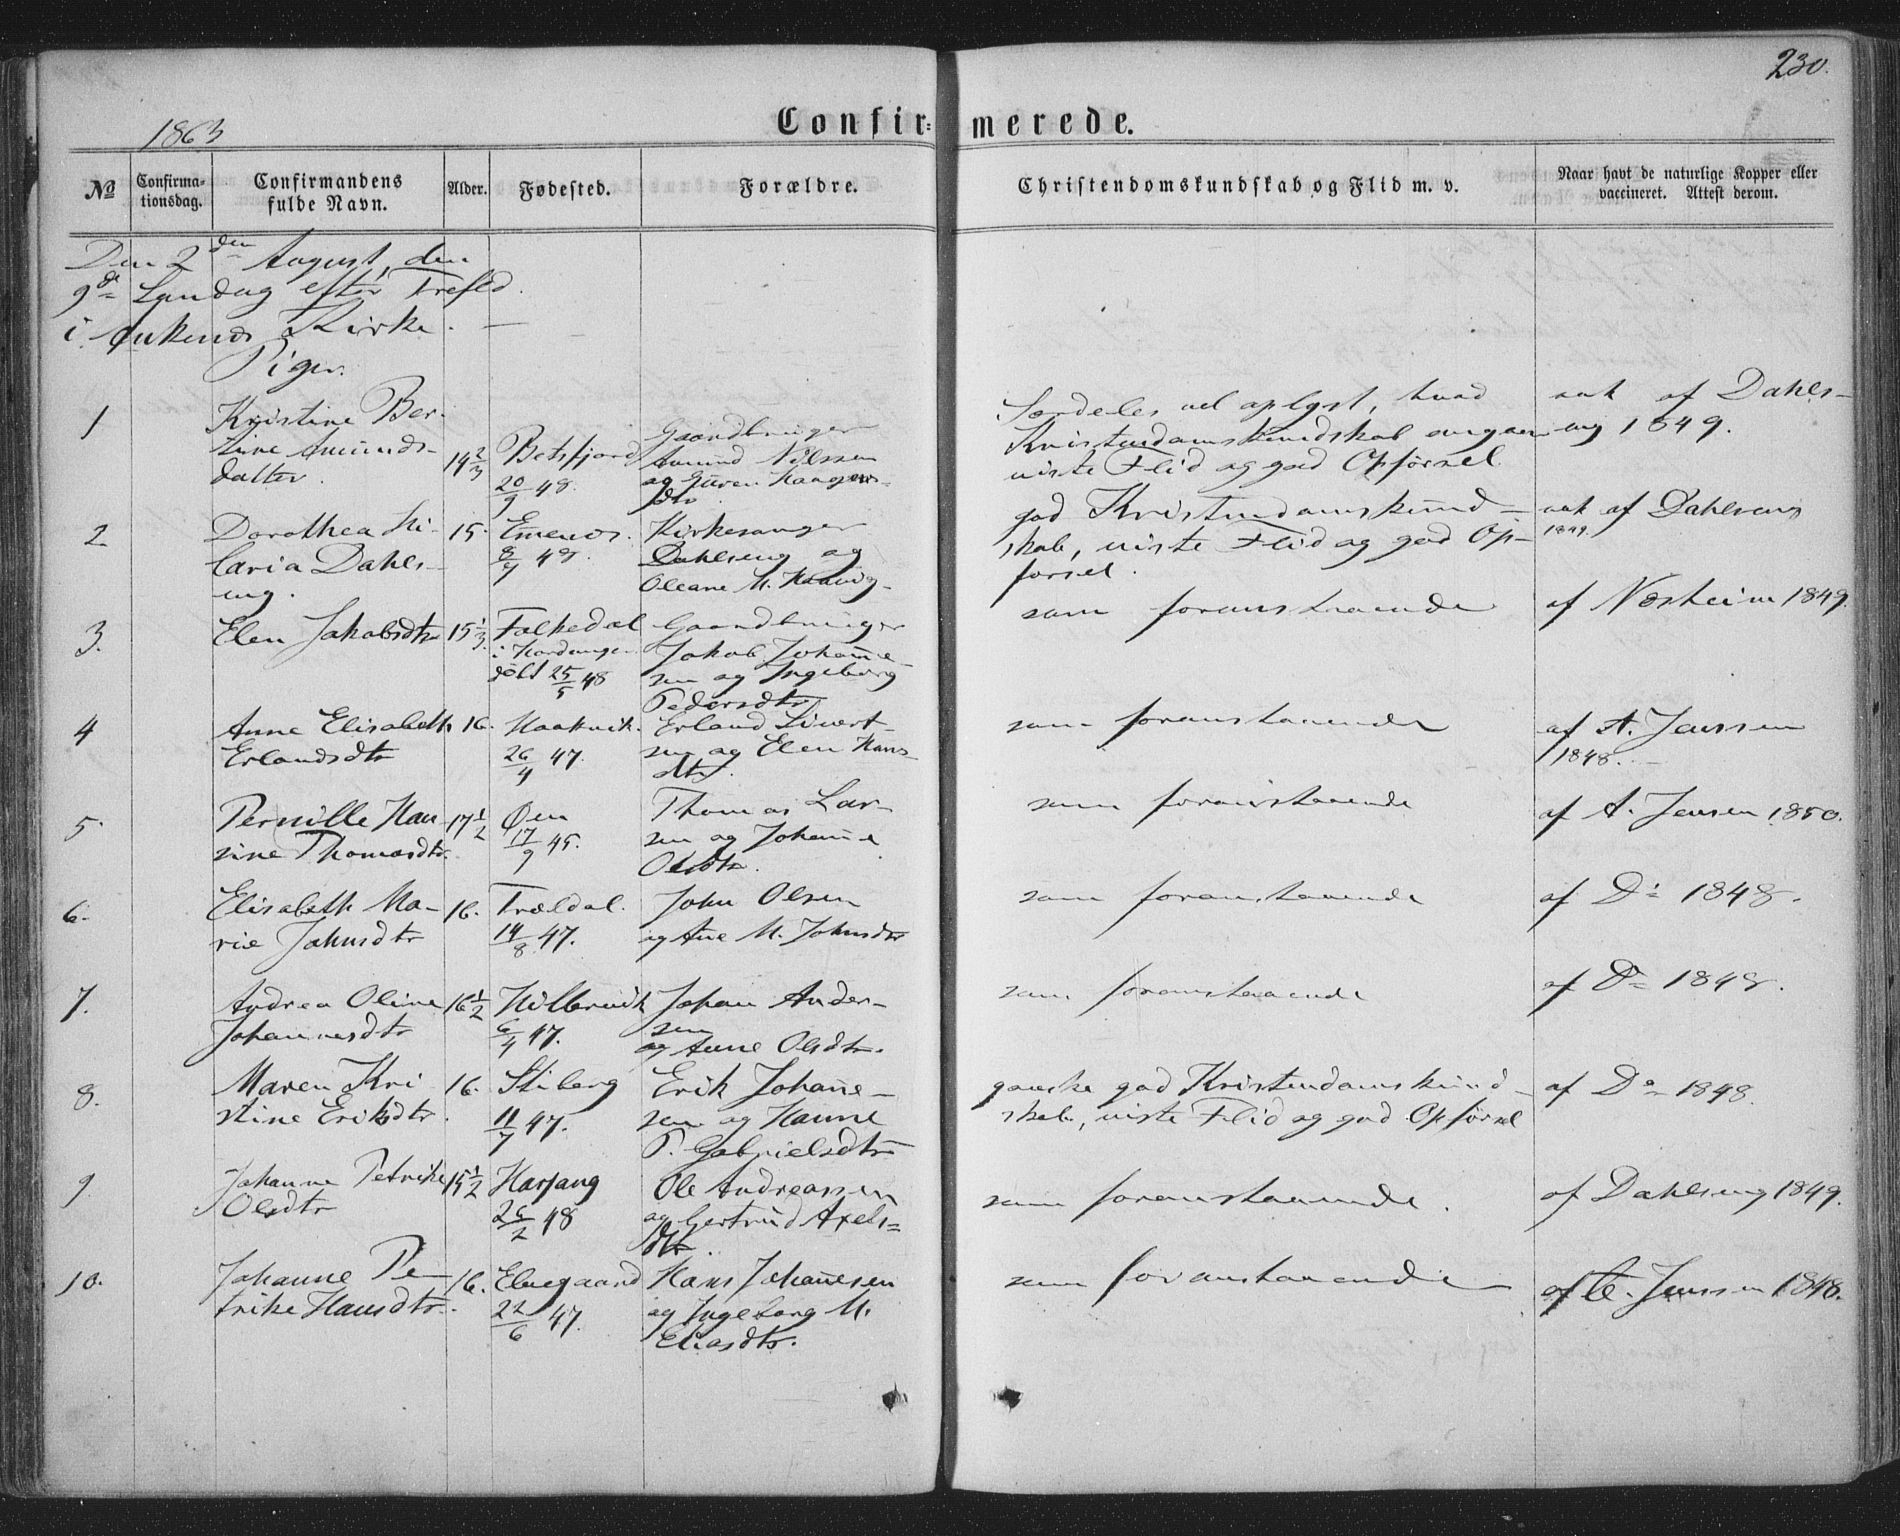 230.
1863
Confir= merede.
No
Confirma-
tionsdag.
Confirmandens
fulde Navn.
Alder.
Fødested.
Forældre.
Christendomskundskab og Flid m. v.
Naar havt de naturlige Kopper eller
vaccineret. Attest derom.
Den 2den August, den
9de Søndag efter Trefld.
i Ankenæs Kirke.
Piger.
1
Kristine Ber-
tine Amunds-
datter.
14 2/3
Beisfjord
20/9 48.
Gaardbruger
Amund Nilssen
og Guren Haagens-
dtr.
Særdeles vel oplyst, hvad
Kristendomskundskab angaar
viste Flid og god Opførsel.
vak af Dahls-
eng 1849.
2
Dorothea Hi-
laria Dahls-
eng.
15.
Emenes.
8/7 48.
Kirkesanger
Dahlseng og
Oleane M. Haavig
god Kristendomskund-
skab, viste Flid og god Op-
førsel.
vak af Dahlseng
1849.
3.
Elen Jakobsdtr
15 1/3.
Falkedal
i Hardanger
døbt 25/5 48
Gaardbruger
Jakob Johanne-
sen og Ingeborg
Pedersdtr
som foranstaaende
af Næsheim 1849.
4
Anne Elisabeth
Erlandsdtr
16.
Haakvik.
26/4 47.
Erland Sivert-
sen og Elen Hans
dtr.
som foranstaaende
af A. Jenssen
1848.
5.
Pernille Han
sine Thomasdtr.
17 1/2
Øen
17/9 45.
Thomas Lar-
sen og Johanne
Olsdtr.
som foranstaaende
af A. Jensen 1850.
6.
Elisabeth Ma-
rie Johnsdtr
16.
Trældal.
14/8 47.
John Olsen
og Ane M. Johnsdtr
som foranstaaende
af Do 1848.
7.
Andrea Oline
Johannesdtr
16 1/2
Hilbervik
6/4 47.
Johan Ander-
sen
og Anne Olsdtr.
som foranstaaende
af Do 1848.
8.
Maren Kri
stine Eriksdtr.
16.
Stiberg
11/7 47.
Erik Johanne-
sen og Hanne
P. Gabrielsdtr
ganske god Kristendomskund-
skab, viste Flid og god Opførsel
af Do 1848.
9
Johanne Petrike
Olsdtr
15 1/2
Harjang
26/2 48
Ole Andreassen
og Gertrud Axels=
dtr.
som foranstaaende.
af Dahlseng 1849.
10.
Johanne Pe-
trike Hansdtr.
16.
Elvegaard
22/6 47.
Hans Johannesen
og Ingeborg M.
Eliasdtr.
som foranstaaende
af C. Jenssen 1848.